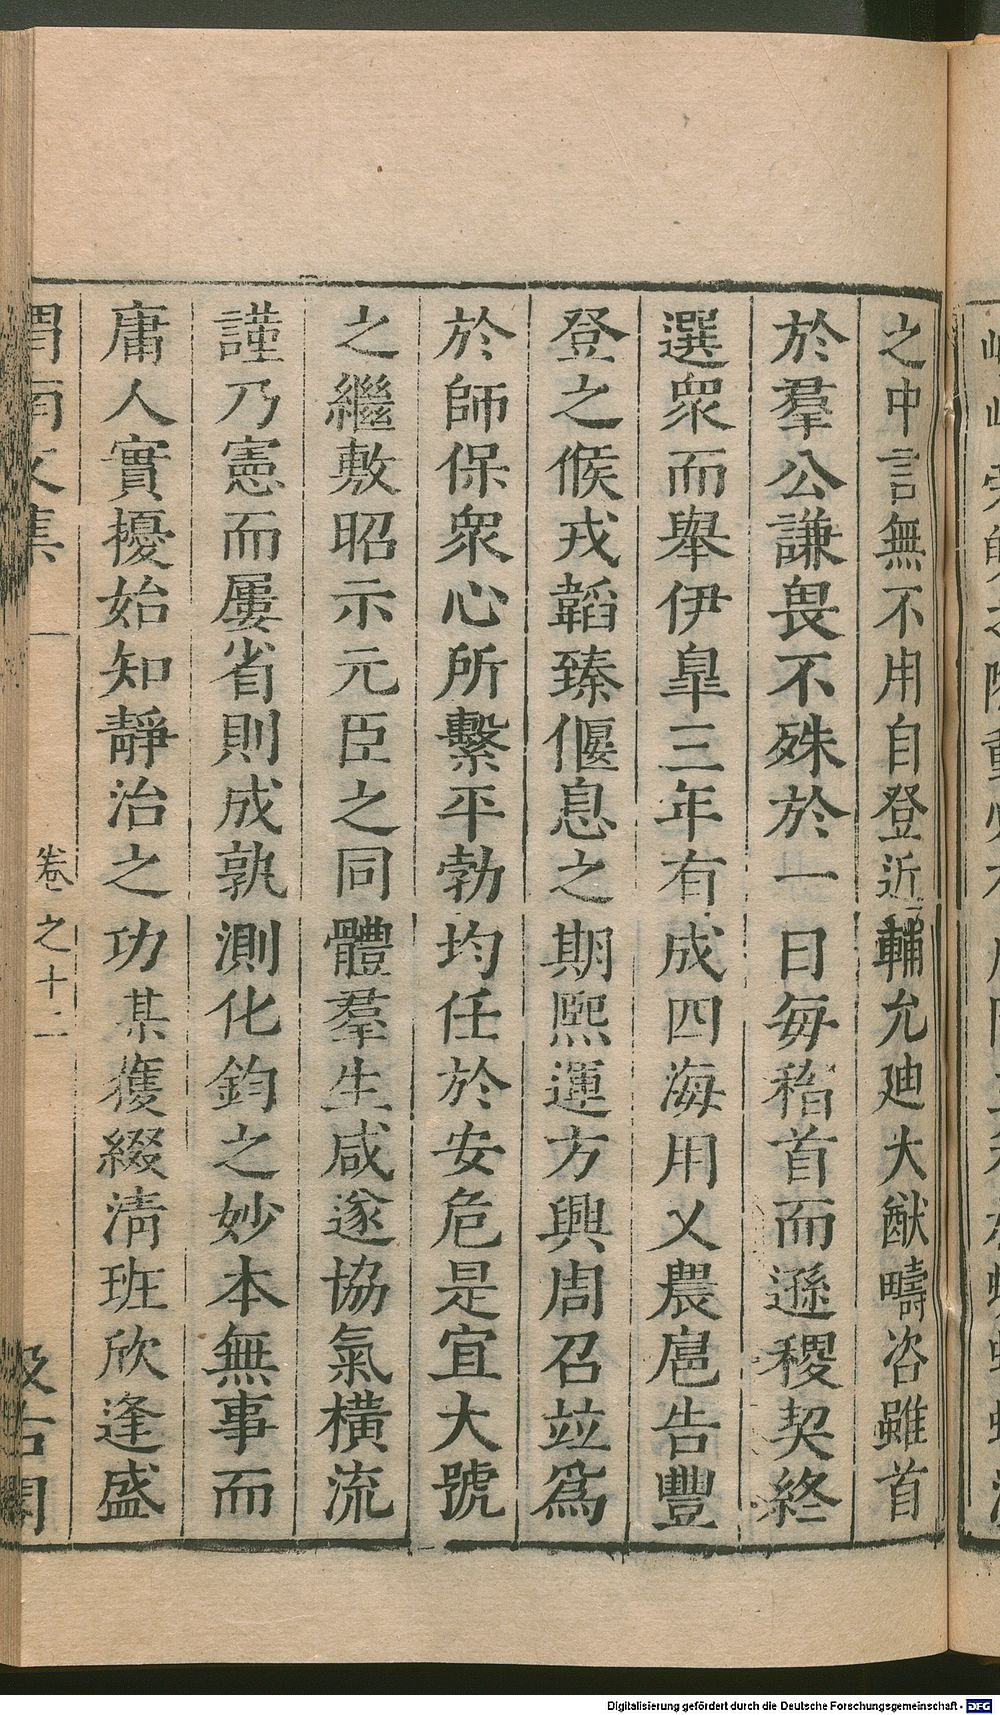 之中言無不用自登近輔允廸大猷疇咨雖首
於羣公謙畏不殊於一日每稽首而遜稷契終
選衆而舉伊臯三年有成四海用乂農扈告豐
登之候戎韜臻偃息之期熙運方興周召竝爲
於師保衆心所繫平勃均任於安危是宜大號
之繼敷昭示元臣之同體羣生咸遂協氣橫流
謹乃憲而屢省則成孰測化鈞之妙本無事而
庸人實擾始知靜治之功某獲綴淸班欣逢盛
渭南文集
卷之十二
汲古閣
Digitalisierung gefördert durch die Deutsche Forschungsgemeinschaft - DFG